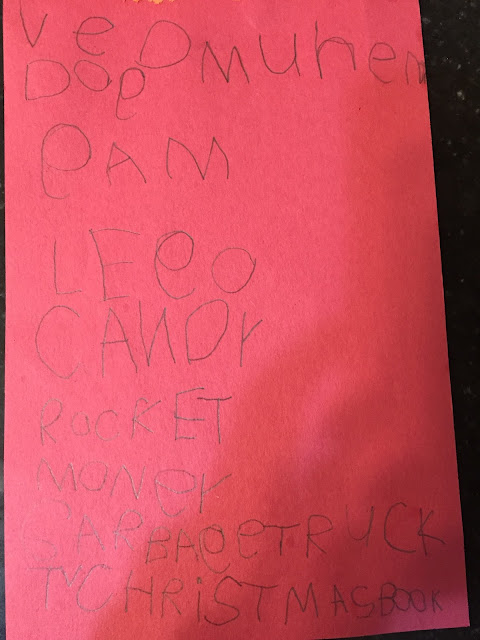 VeDmuhem
Dop
eAM
LEeO
CANDY
ROCKET
MONeY
GARBAGeTRUCK
TVCHRiSTMASBOOK